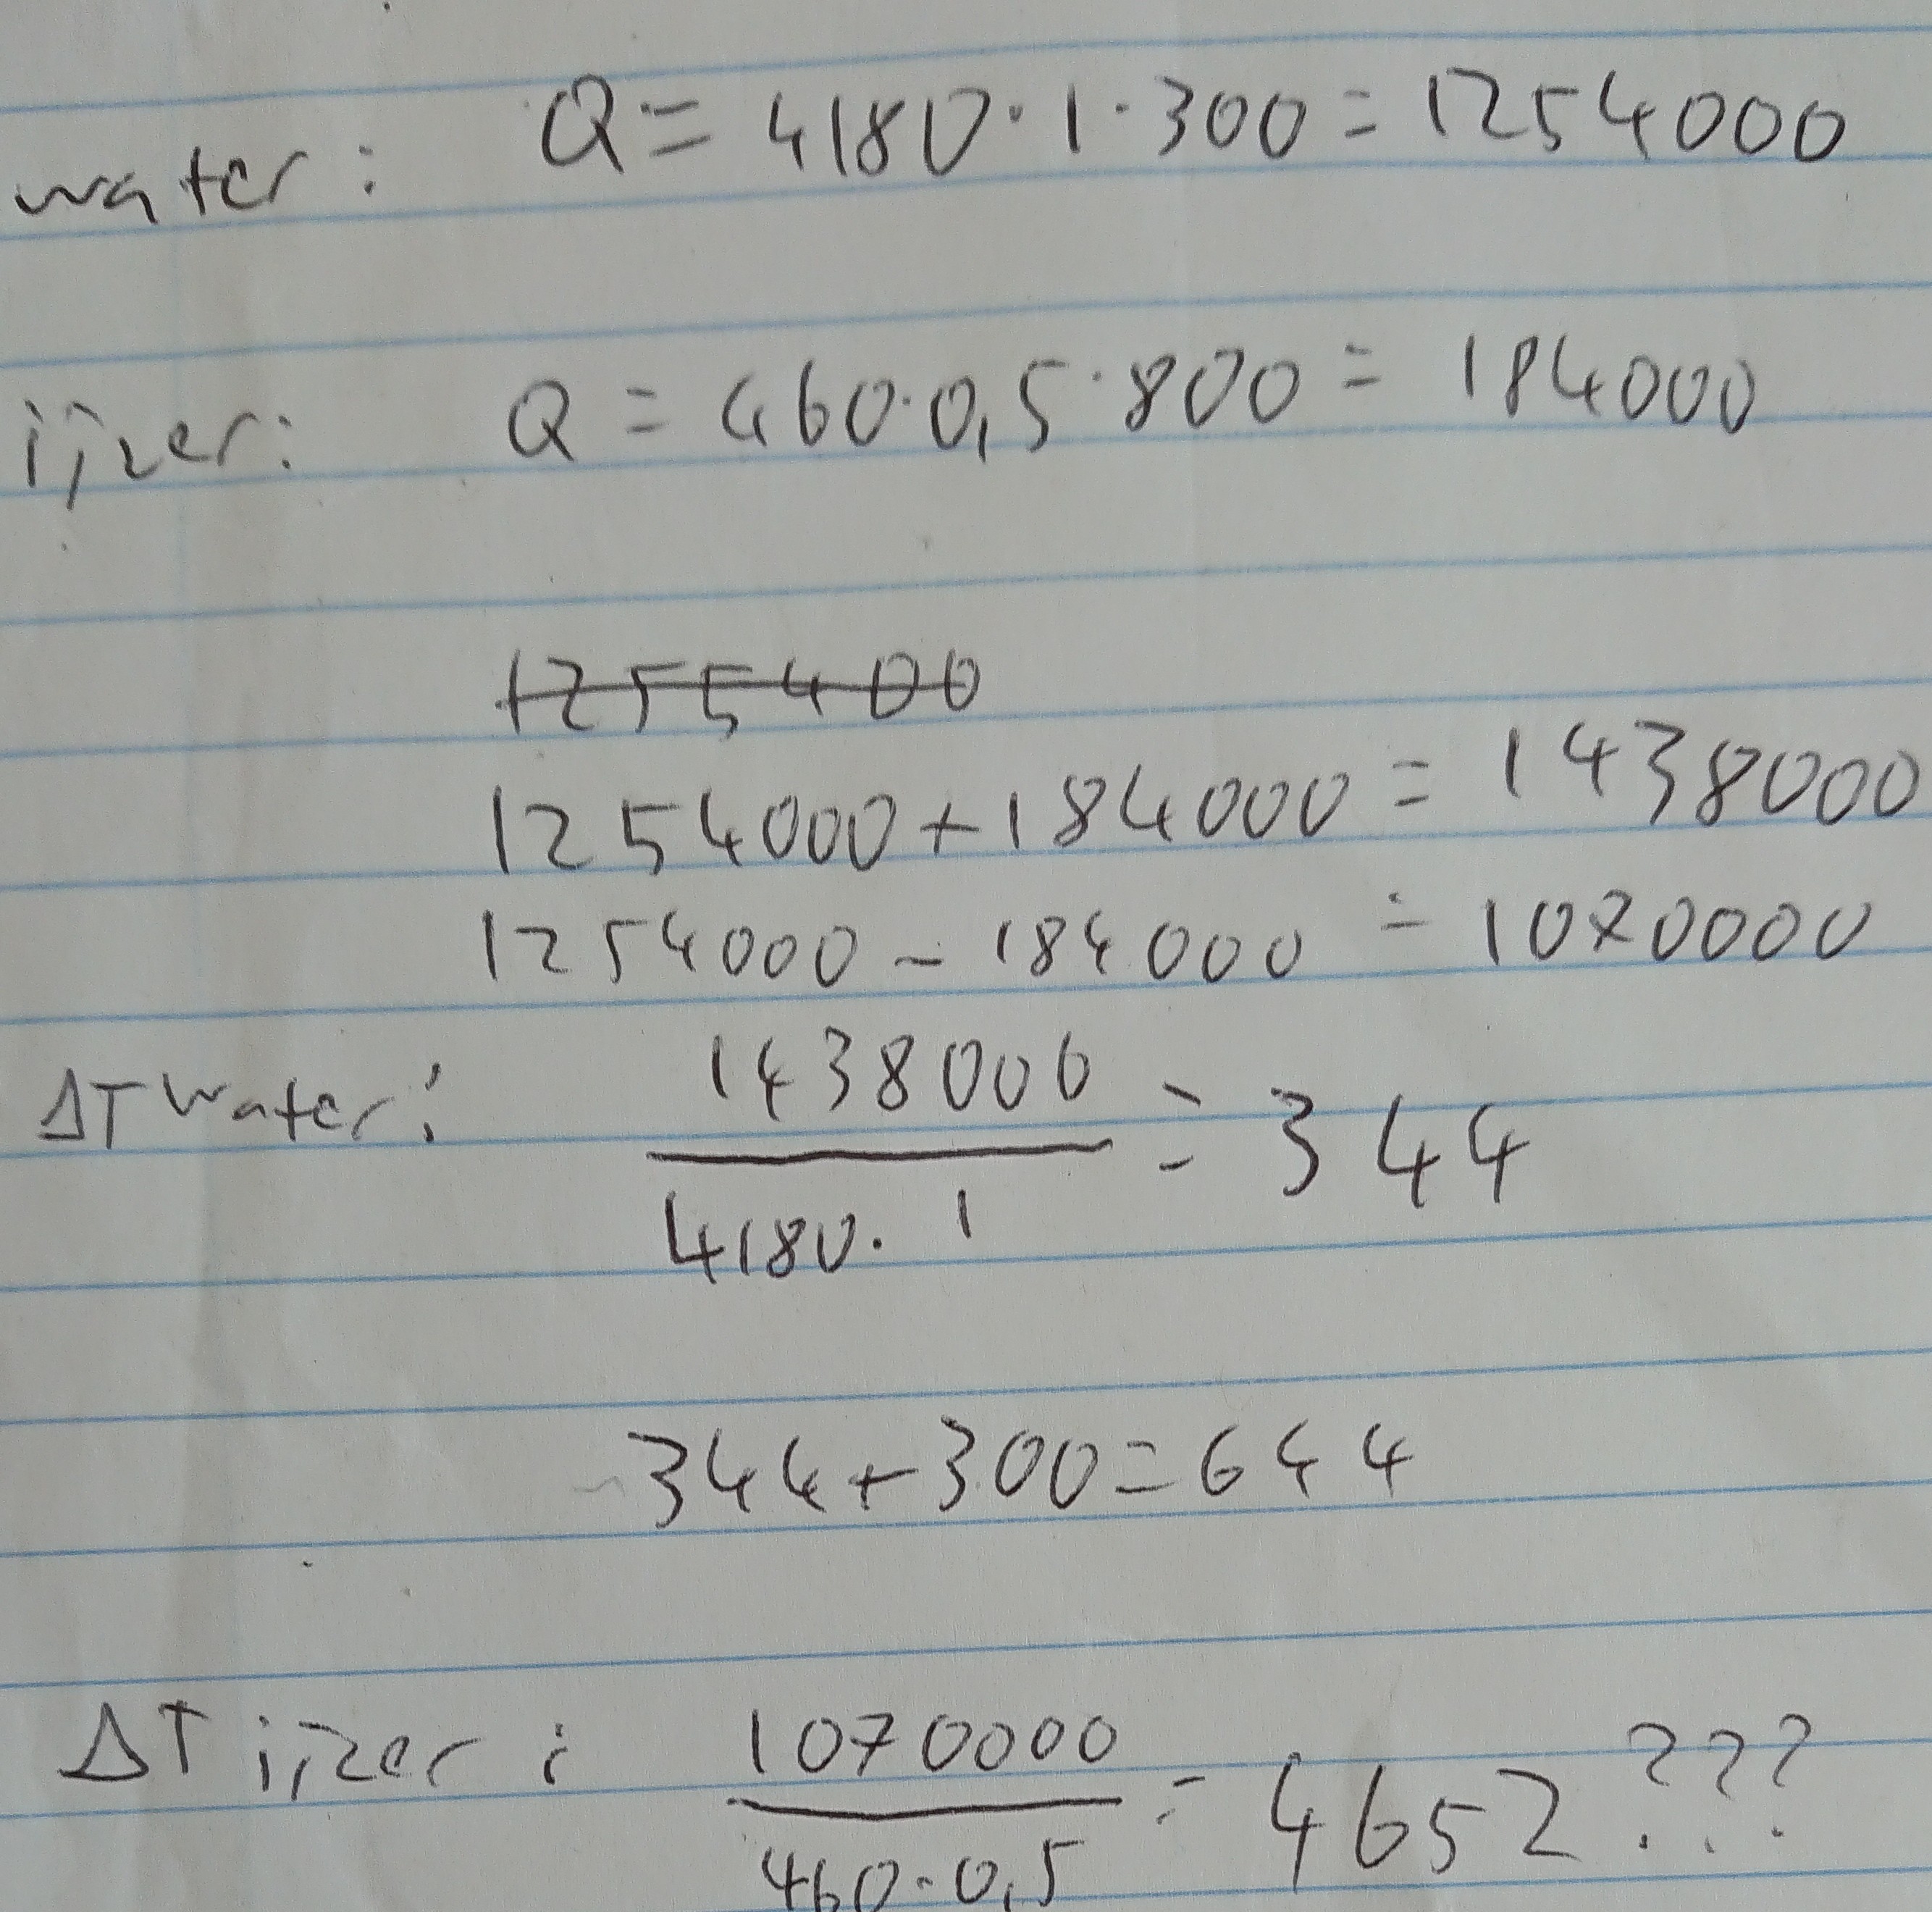 water: Q = 4180·1·300 = 1254000
ijzer: Q = 460·0,5·800 = 184000
1255400
1254000 + 184000 = 1438000
1254000 - 184000 = 1070000
ΔT water: 1438000
4180·1 = 344
344 + 300 = 644
ΔT ijzer: 1070000
460·0,5 = 4652???